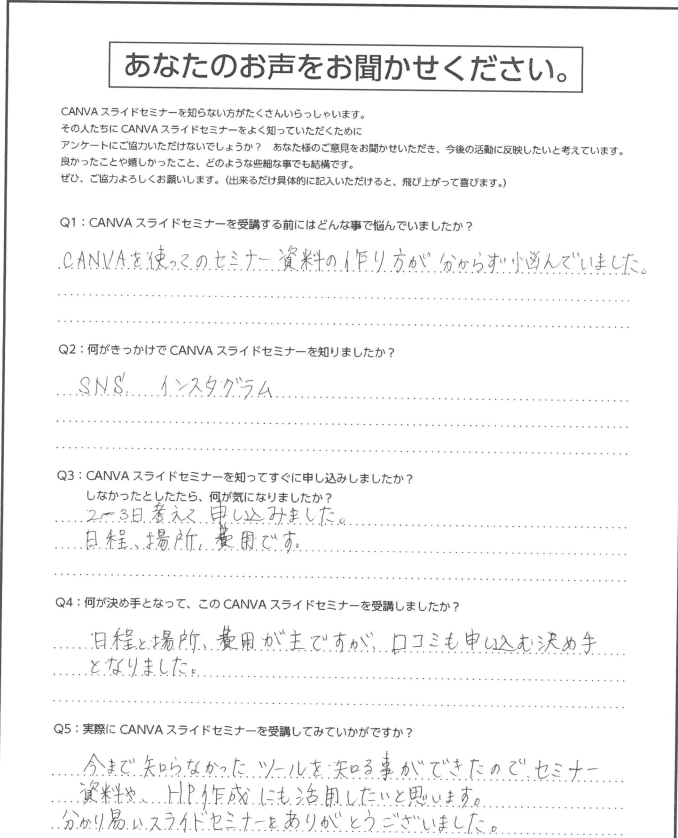 あなたのお声をお聞かせください。
CANVAスライドセミナーを知らない方がたくさんいらっしゃいます。
その人たちにCANVAスライドセミナーをよく知っていただくために
アンケートにご協力いただけないでしょうか？　あなた様のご意見をお聞かせいただき、今後の活動に反映したいと考えています。
良かったことや嬉しかったこと、どのような些細な事でも結構です。
ぜひ、ご協力よろしくお願いします。（出来るだけ具体的に記入いただけると、飛び上がって喜びます。）
Q1：CANVAスライドセミナーを受講する前にはどんな事で悩んでいましたか？
CANVAを使ってのセミナー資料の作り方が分からず悩んでいました。
Q2：何がきっかけでCANVAスライドセミナーを知りましたか？
SNS インスタグラム
Q3：CANVAスライドセミナーを知ってすぐに申し込みしましたか？
しなかったとしたたら、何が気になりましたか？
2〜3日考えて申し込みました。
日程、場所、費用です。
Q4：何が決め手となって、このCANVAスライドセミナーを受講しましたか？
日程と場所、費用が主ですが、口コミも申し込む決め手
となりました。
Q5：実際にCANVAスライドセミナーを受講してみていかがですか？
今まで知らなかったツールを知る事ができたので、セミナー
資料や、HP作成にも活用したいと思います。
分かり易いスライドセミナーをありがとうございました。